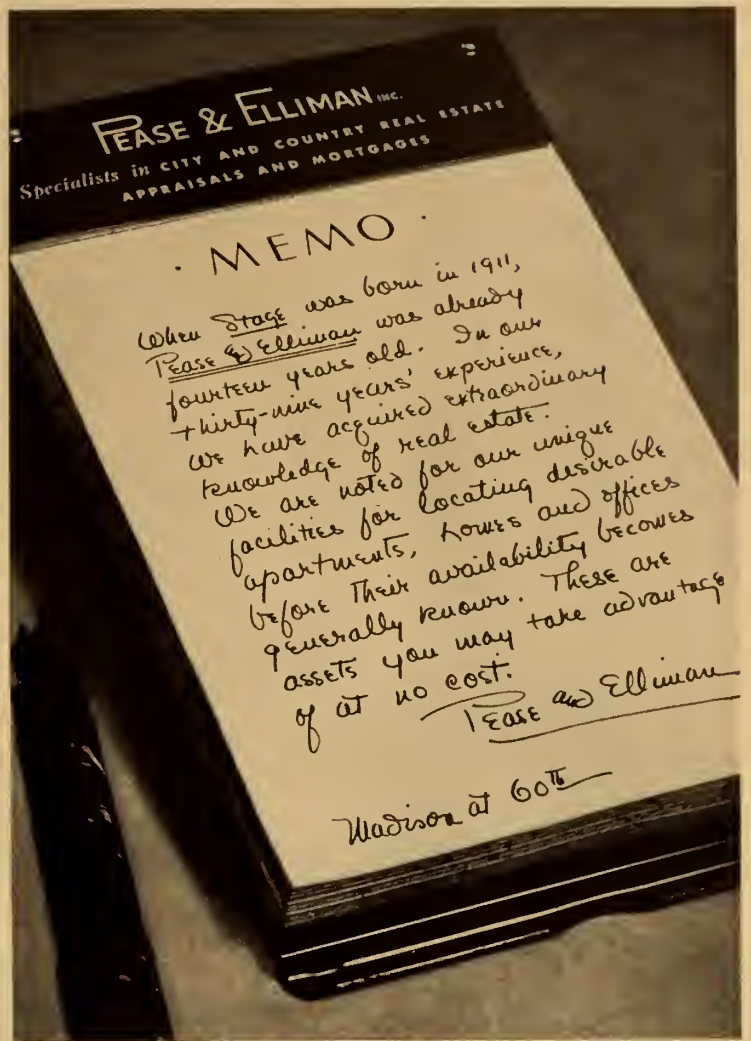 PEASE & ELLIMAN INC.
Specialists in CITY AND COUNTRY REAL ESTATE
APPRAISALS AND MORTGAGES
· MEMO ·
When Stage was born in 1911,
Pease & Elliman was already
fourteen years old. In our
thirty-nine years' experience,
we have acquired extraordinary
knowledge of real estate.
We are noted for our unique
facilities for locating desirable
apartments, homes and offices
before their availability becomes
generally known. These are
assets you may take advantage
of at no cost.
Pease and Elliman
Madison at 60th